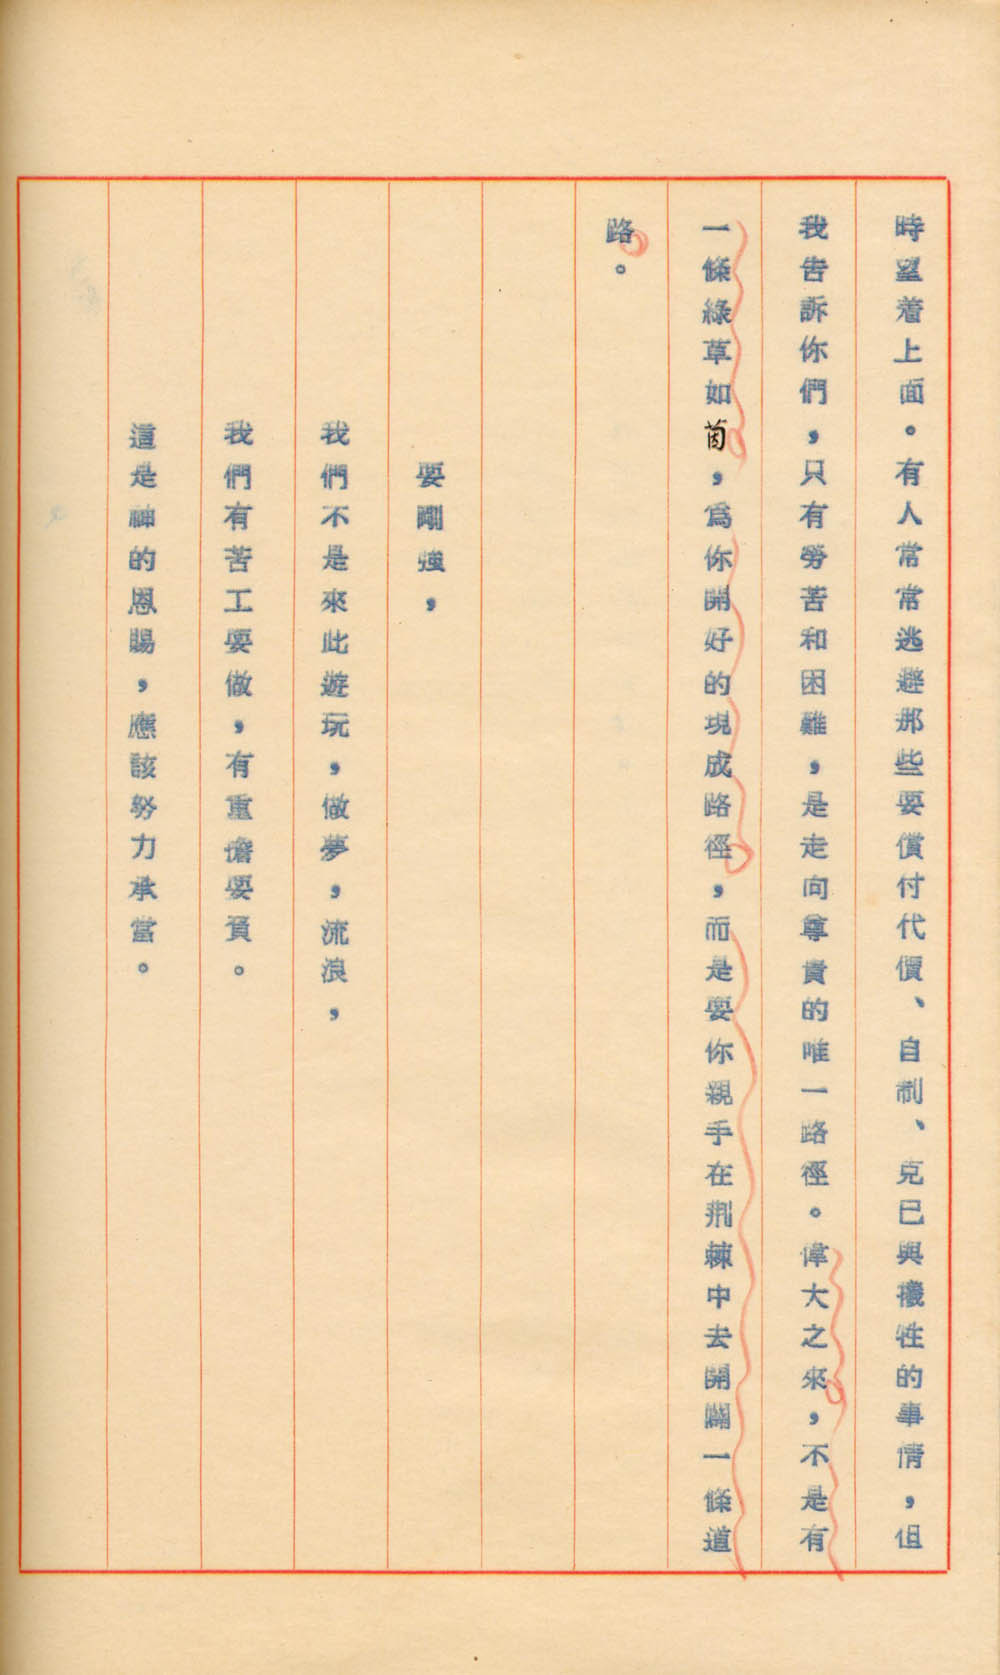 時望着上面。有人常常逃避那些要償付代價、自制、克已與犧牲的事情，但
我告訴你們，只有勞苦和困難，是走向尊貴的唯一路徑。偉大之來，不是有
一條綠草如茵，爲你開好的現成路徑，而是要你親手在荆棘中去開闢一條道
路。
要剛強，
我們不是來此遊玩，做夢，流浪，
我們有苦工要做，有重擔要負。
這是神的恩賜，應該努力承當。